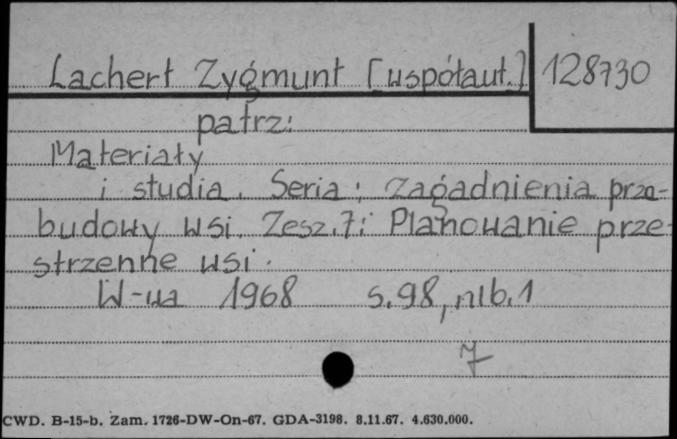 Lachert Zygmunt [współaut.] 128730
patrz:
Materiały
i studia. Seria: Zagadnienia prze-
budowy wsi. Zesz. 7: Planowanie prze-
strzenne wsi.
W-wa 1968 s. 98, nlb. 1
7
CWD. B-15-b. Zam. 1726-DW-On-67. GDA-3198. 8.11.67. 4.630.000.